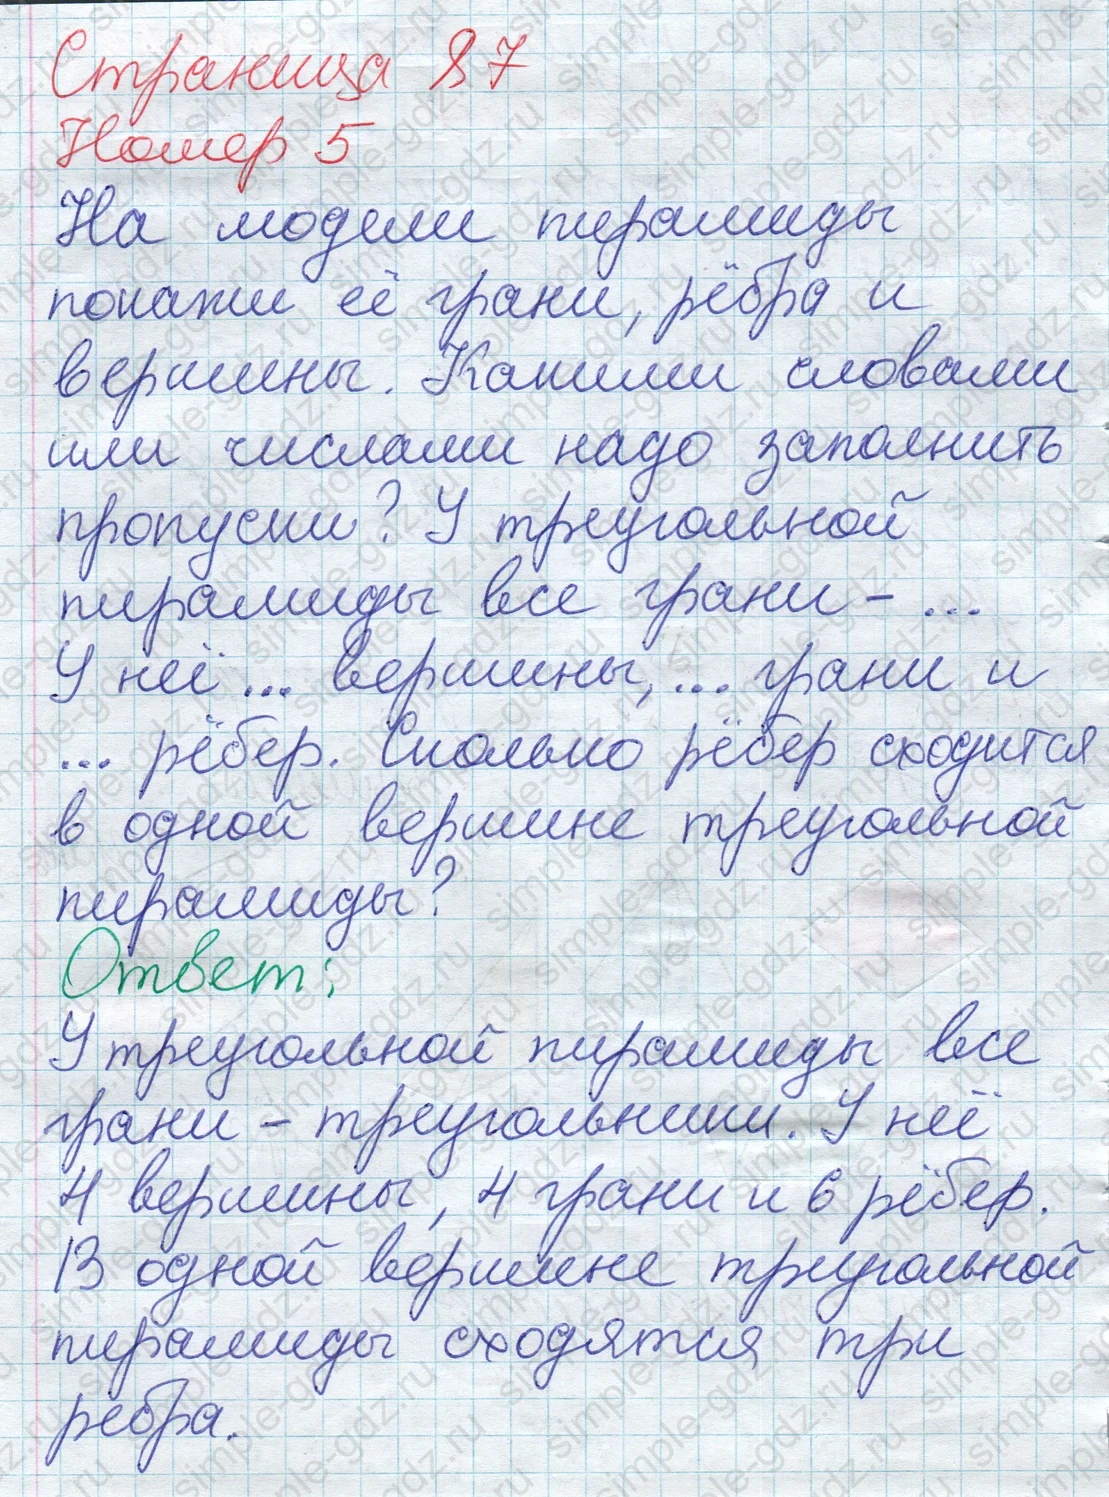 Страница 87
Номер 5
На модели пирамиды
покажи её грани, рёбра и
вершины. Какими словами
или числами надо заполнить
пропуски? У треугольной
пирамиды все грани - ...
У неё ... вершины, ... грани и
... рёбер. Сколько рёбер сходится
в одной вершине треугольной
пирамиды?
Ответ:
У треугольной пирамиды все
грани - треугольники. У неё
4 вершины, 4 грани и 6 рёбер.
В одной вершине треугольной
пирамиды сходятся три
ребра.
simple-gdz.ru